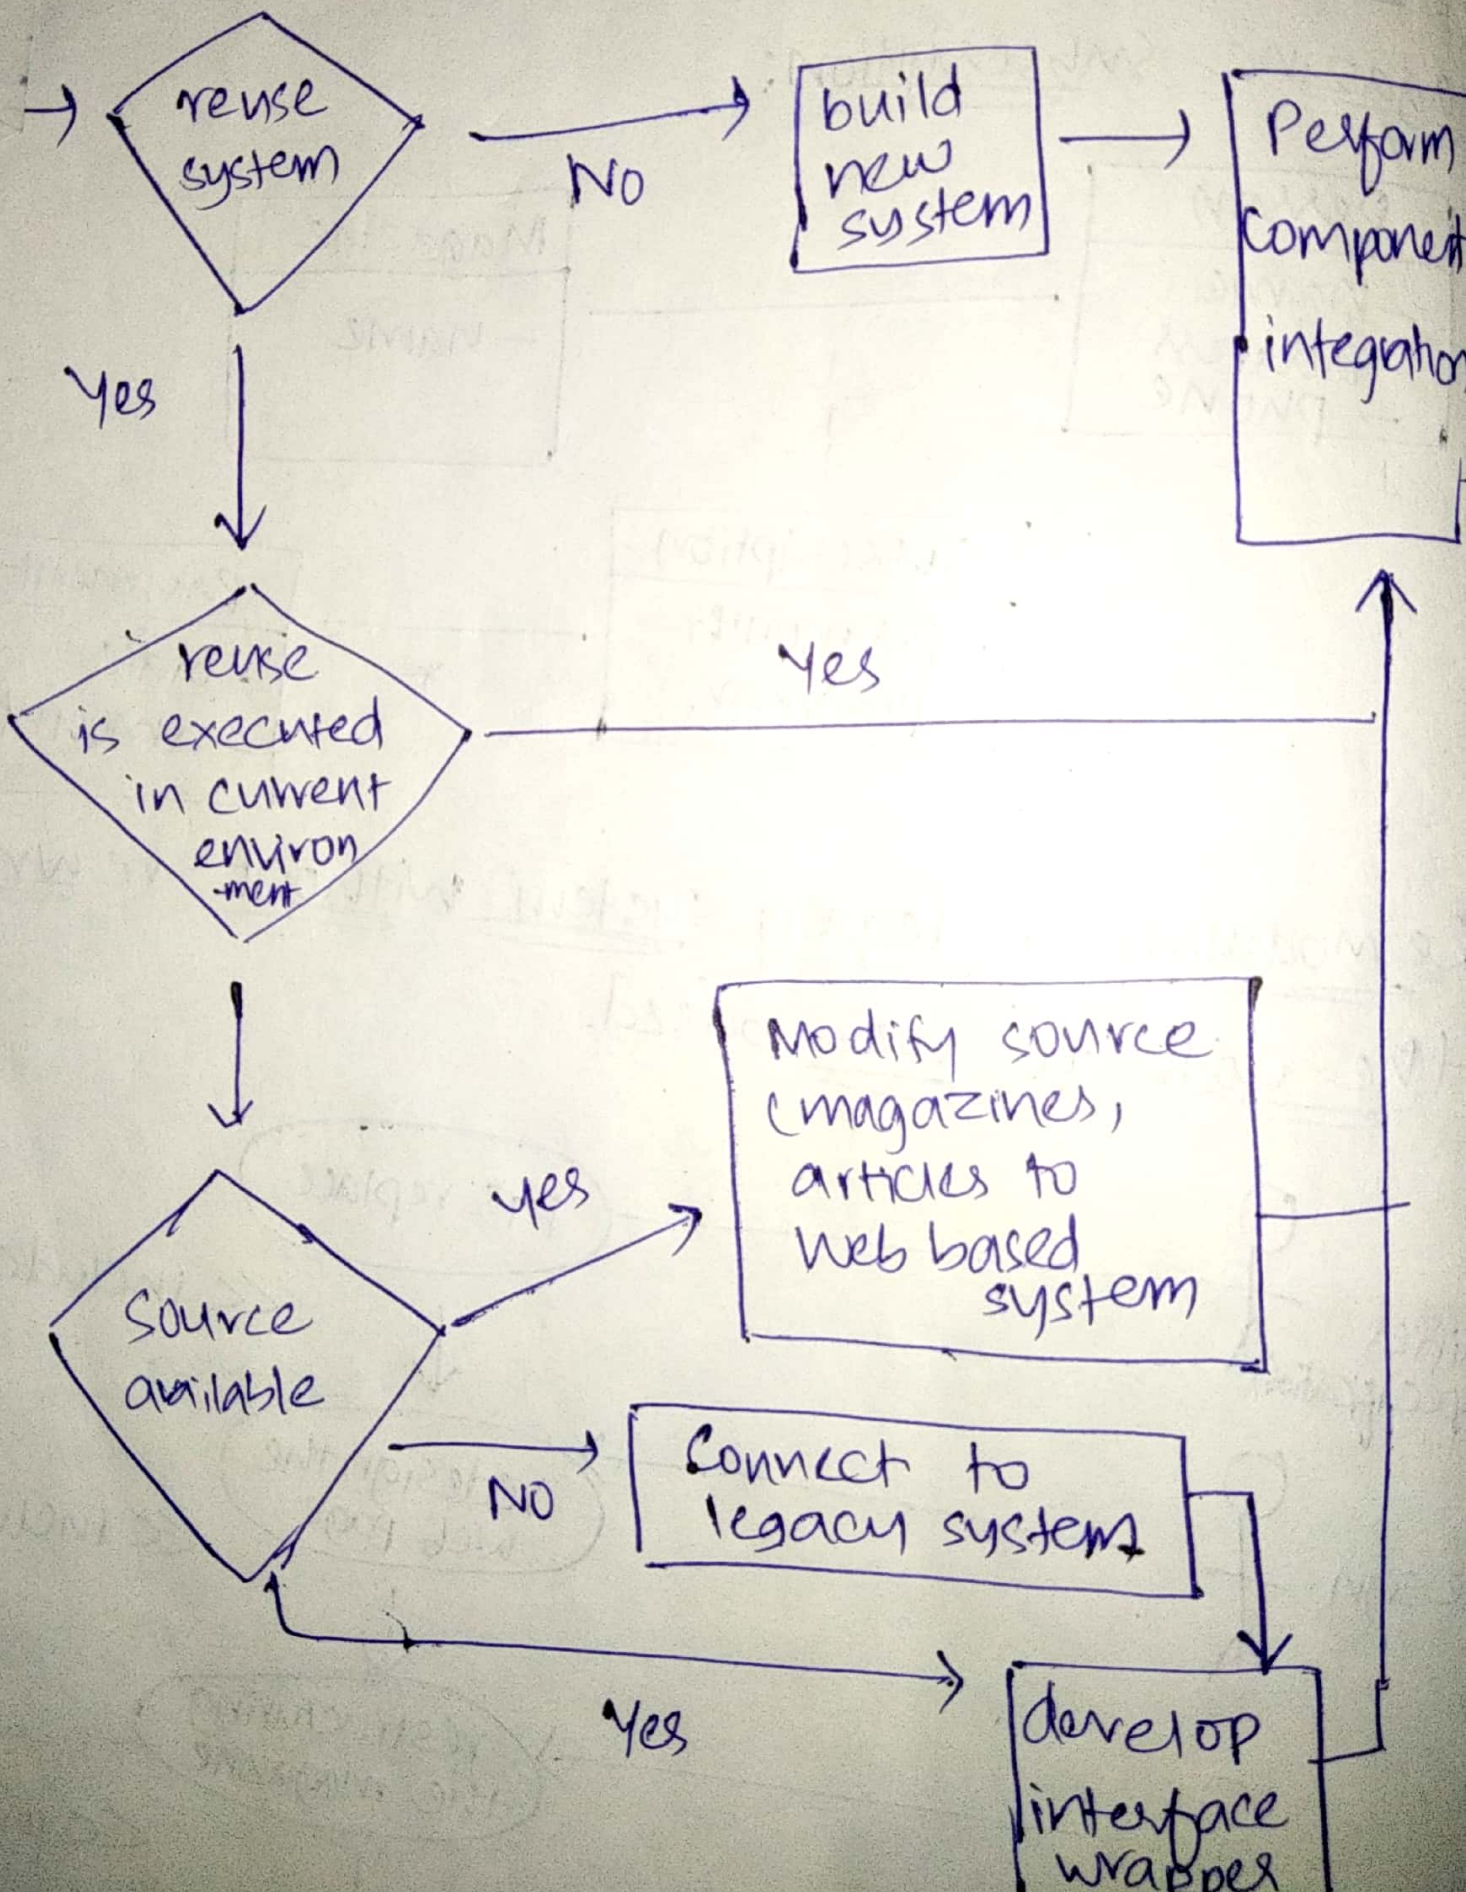 reuse
system
NO
build
new
system
Perform
component
integration
Yes
reuse
is executed
in current
environ
-ment
Yes
Modify source
(magazines,
articles to
web based
system
Source
available
yes
NO
Connect to
legacy system
Yes
develop
interface
wrapper